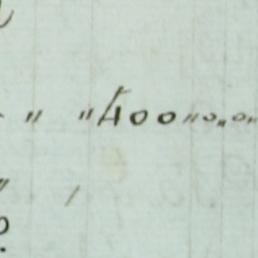 " " 400 " 0 " 0 "